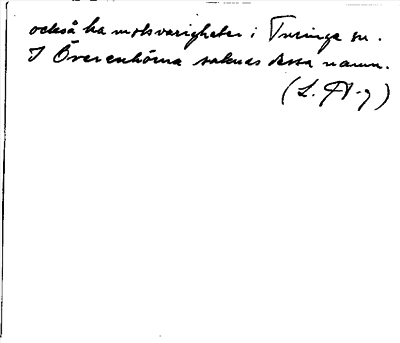 också ha motsvarigheter i Turinge sn.
I Överenhörna saknas dessa namn.
(L. A-g)